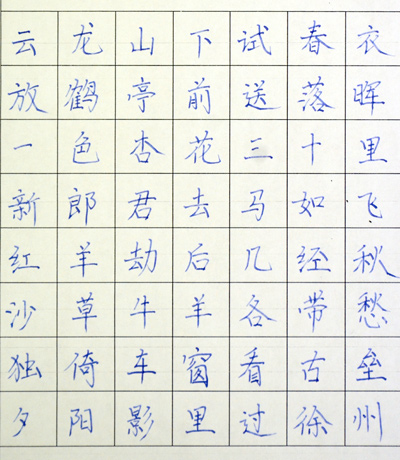 云龙山下试春衣
放鹤亭前送落晖
一色杏花三十里
新郎君去马如飞
红羊劫后几经秋
沙草牛羊各带愁
独倚车窗看古垒
夕阳影里过徐州